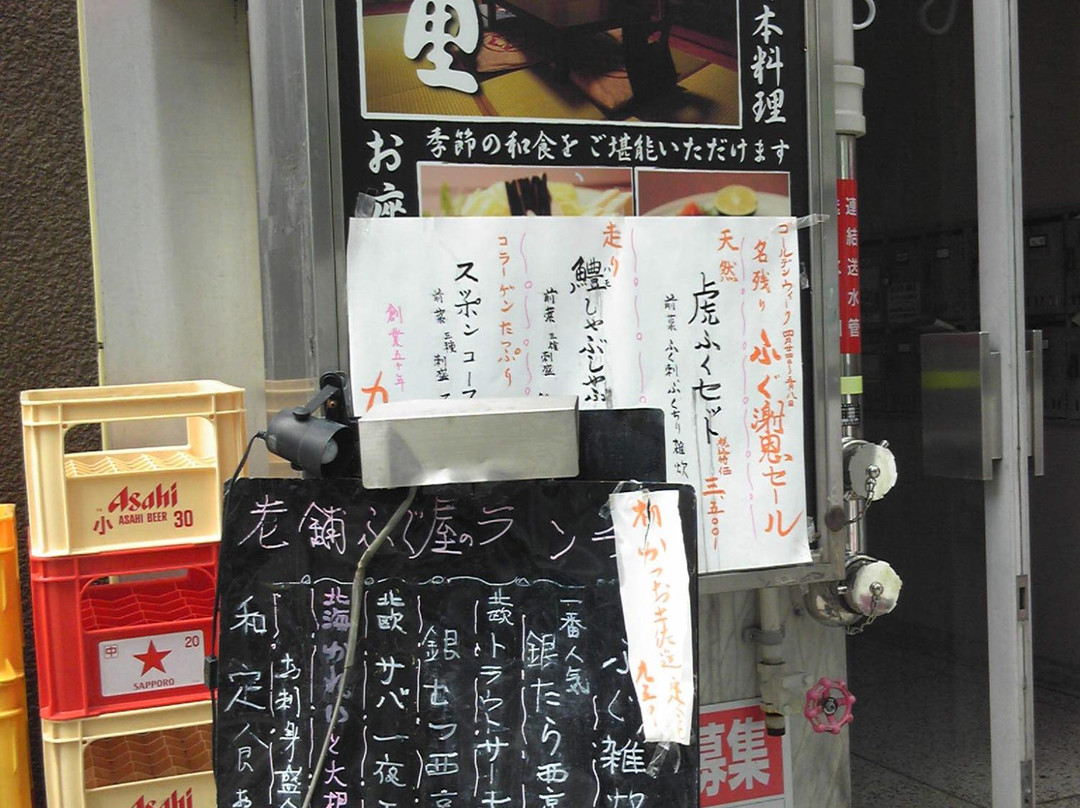 里
本料理
季節の和食をご堪能いただけます
お座
ゴールデンウィーク
名残り ふぐ謝恩セール
天然
虎ふくセット
前菜 ふく刺 ふくちり 雑炊
三、五〇〇
走り
鱧しゃぶしゃぶ
ハモ
前菜 三種 刺盛
コラーゲンたっぷり
スッポンコース
前菜 三種 刺盛
創業五十年
連結送水管
老舗ふぐ屋のランチ
ふぐ雑炊
一番人気
銀たら西京
北欧トラウトサーモ
銀むつ西京
北欧サバ一夜干
北海かれいと大根
お刺身盛合
和定食
募集
Asahi
小 ASAHI BEER 30
中 20
SAPPORO
Asahi